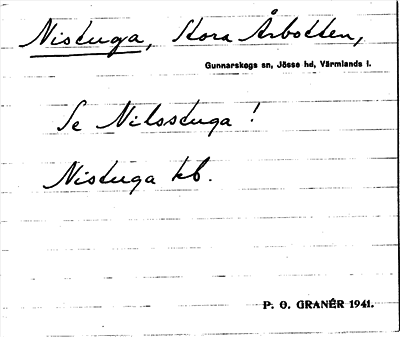 Nistuga, Stora Årbotten,
Gunnarskogs sn, Jösse hd, Värmlands l.
Se Nilsstuga!
Nistuga kb.
P. O. GRANÉR 1941.